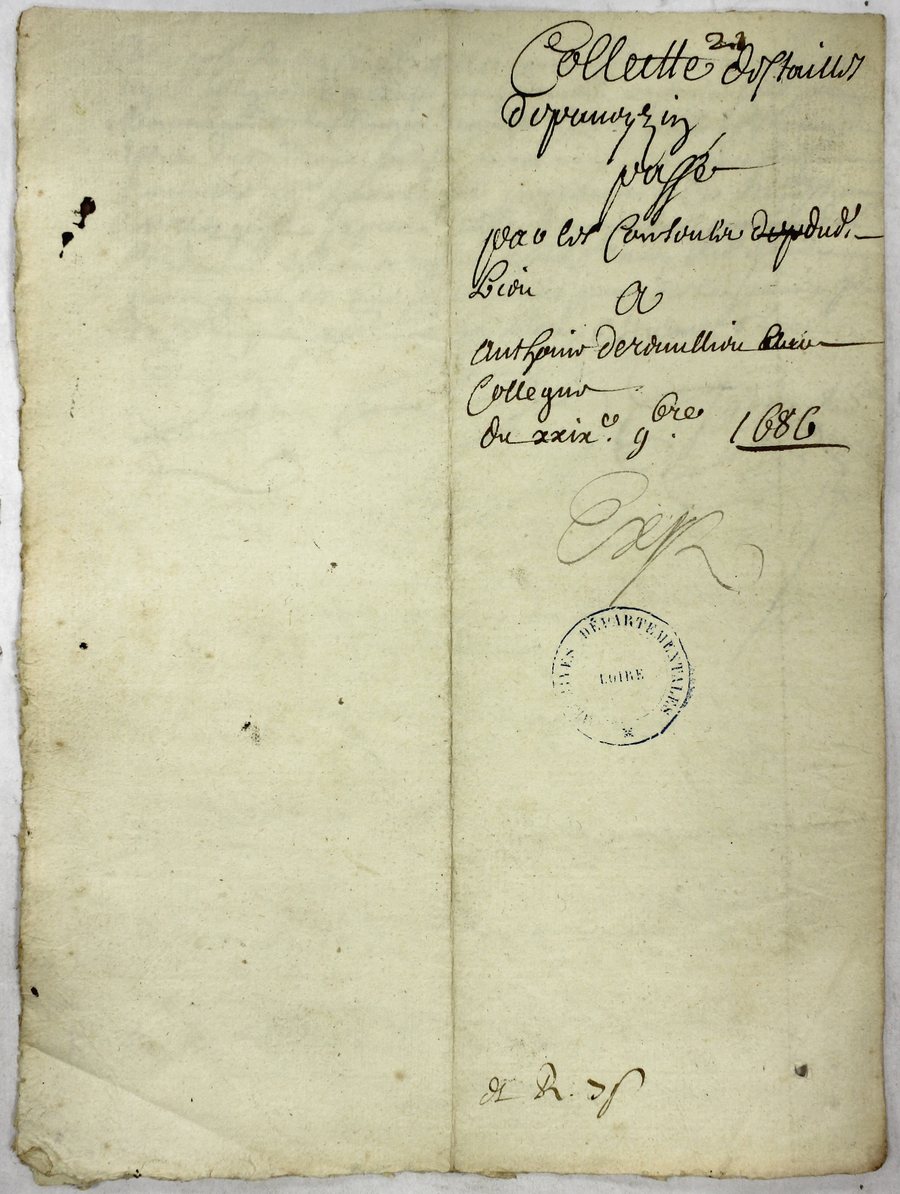 21
Collectte des tailles
de panezzin
passé
par les Consculz dud.
Lieu
A
Anthoine Deroullion
Collegue
du xxixe. 9bre. 1686
ARCHIVES DÉPARTEMENTALES
LOIRE
R.